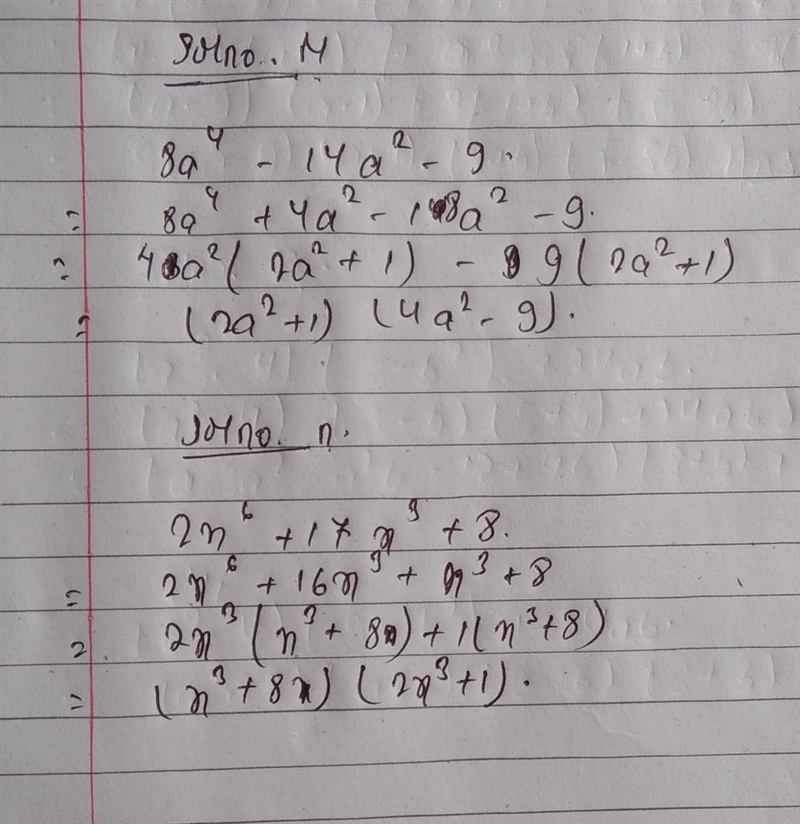 8a⁴ - 14a² - 9.
= 8a⁴ + 4a² - 18a² - 9.
= 4a² ( 2a² + 1) - 9 ( 2a² + 1)
= (2a² + 1) (4a² - 9).
n.
2x⁶ + 17x³ + 8.
= 2x⁶ + 16x³ + x³ + 8
= 2x³ (x³ + 8) + 1(x³ + 8)
= (x³ + 8) (2x³ + 1).